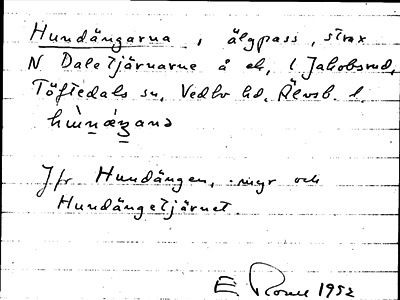 Hundängarna, älgpass, strax
N Daletjärnarne å ek, 1 Jakobsrud,
Töftedals sn, Vedbo hd, Älvsb. l.
Jfr Hundängen, myr och
Hundängetjärnet.
E 1952